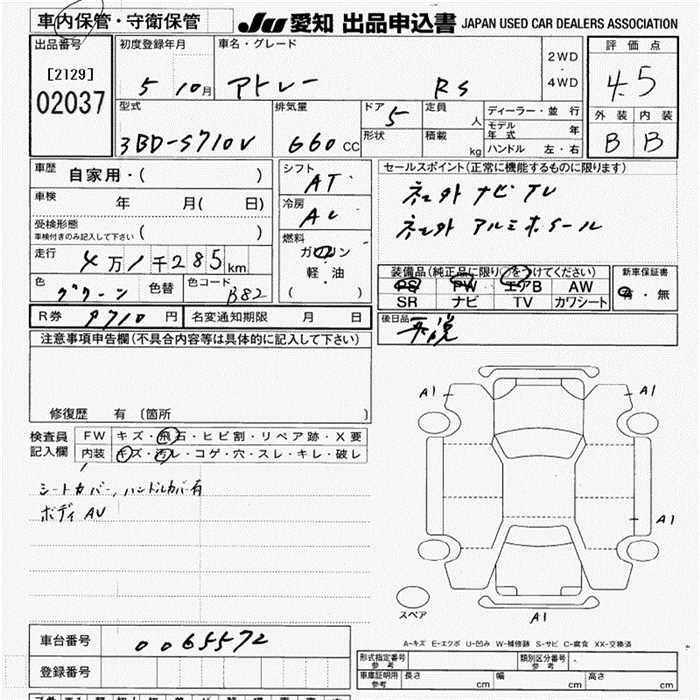 車内保管・守衛保管
JU 愛知 出品申込書 JAPAN USED CAR DEALERS ASSOCIATION
出品番号 [2129] 02037
初度登録年月 5 10月
車名・グレード アトレー RS
2WD・4WD
評価点 4.5
外装 内装
B B
型式 3BD-S710V
排気量 660 CC
ドア 5
形状
定員 人
積載 kg
ディーラー・並行
モデル年式 年
ハンドル 左・右
車歴 自家用・( )
車検 年 月( 日)
受検形態 車検付きのみ記入して下さい ( )
走行 4万1千285km
色 グリーン 色替 色コード B82
シフト AT
冷房 AC
燃料 ガソリン
軽・油
( )
セールスポイント(正常に機能するものに限ります)
社外 ナビ TV
社外 アルミホイール
装備品(純正品に限り○をつけてください)
PS PW エアB AW
SR ナビ TV カワシート
新車保証書
有・無
R券 9710円 名変通知期限 月 日
後日品
注意事項申告欄(不具合内容等は具体的に記入して下さい)
修復歴 有 [箇所 ]
検査員記入欄
FW キズ・飛石・ヒビ割・リペア跡・X要
内装 キズ・汚レ・コゲ・穴・スレ・キレ・破レ
シートカバー, ハンドルカバー有
ボディ AU
A1 A1
A1
A1
スペア
A-キズ E-エクボ U-凹み W-補修跡 S-サビ C-腐食 XX-交換済
車台番号 0065572
登録番号
形式指定番号 参考
類別区分番号 参考
車庫証明用 参考 長さ cm 幅 cm 高さ cm